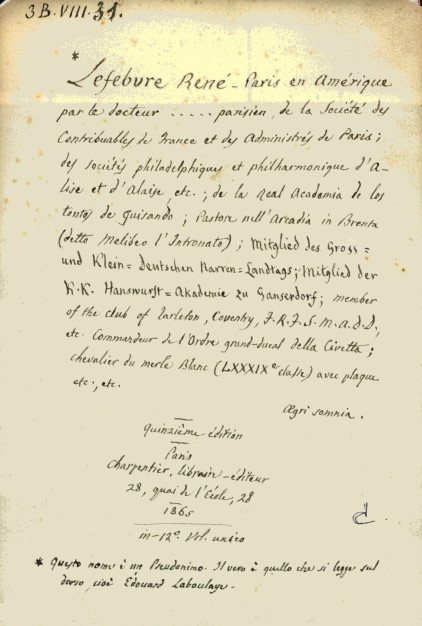 3B.VIII.31.
*
Lefebvre René - Paris en Amérique
par le docteur ..... parisien, de la Société des
Contribuables de France et des Administrés de Paris;
des sociétés philadelphiques et philharmonique d'A-
lise et d'Alaise, etc.; de la Real Academia de los
tontos de Guisando; Pastore nell'Arcadia in Brenta
(detto Melibeo l'Intronato); Mitglied des Gross=
und Klein=Deutschen Narren=Landtags; Mitglied der
K.K. Hanswurst=Akademie zu Ganserdorf; member
of the club of Tarleton, Coventry, F.R.F.S.M.A.D.D.,
etc. Commandeur de l'Ordre grand-ducal della Civetta;
chevalier du merle Blanc (LXXXIXe classe) avec plaque
etc., etc.
Ægri somnia.
Quinzième édition
Paris
Charpentier, libraire-éditeur
28, quai de l'École, 28
1865
in-12º. Vol. unico
* Questo nome è un Pseudonimo. Il vero è quello che si legge sul
dorso, cioè Édouard Laboulaye.